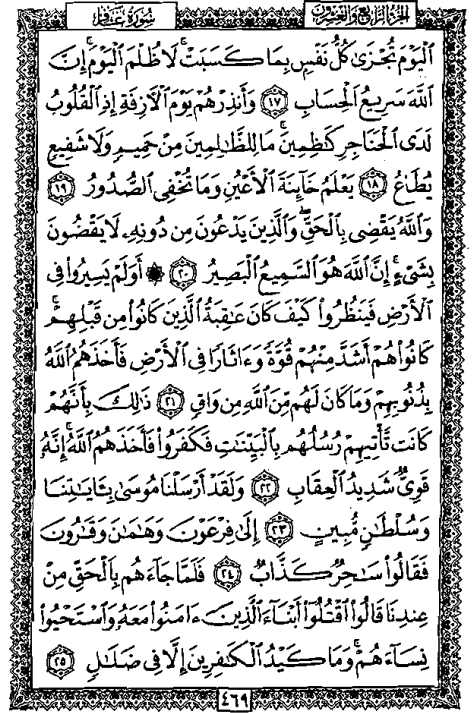 الجزء الرابع والعشرون
سورة غافر
ٱلْيَوْمَ تُجْزَىٰ كُلُّ نَفْسٍۭ بِمَا كَسَبَتْ ۚ لَا ظُلْمَ ٱلْيَوْمَ ۚ إِنَّ
ٱللَّهَ سَرِيعُ ٱلْحِسَابِ ١٧ وَأَنذِرْهُمْ يَوْمَ ٱلْآزِفَةِ إِذِ ٱلْقُلُوبُ
لَدَى ٱلْحَنَاجِرِ كَٰظِمِينَ ۚ مَا لِلظَّٰلِمِينَ مِنْ حَمِيمٍ وَلَا شَفِيعٍ
يُطَاعُ ١٨ يَعْلَمُ خَآئِنَةَ ٱلْأَعْيُنِ وَمَا تُخْفِى ٱلصُّدُورُ ١٩
وَٱللَّهُ يَقْضِى بِٱلْحَقِّ ۖ وَٱلَّذِينَ يَدْعُونَ مِن دُونِهِۦ لَا يَقْضُونَ
بِشَىْءٍ ۗ إِنَّ ٱللَّهَ هُوَ ٱلسَّمِيعُ ٱلْبَصِيرُ ٢٠ ۞ أَوَلَمْ يَسِيرُوا۟ فِى
ٱلْأَرْضِ فَيَنظُرُوا۟ كَيْفَ كَانَ عَٰقِبَةُ ٱلَّذِينَ كَانُوا۟ مِن قَبْلِهِمْ ۚ
كَانُوا۟ هُمْ أَشَدَّ مِنْهُمْ قُوَّةً وَءَاثَارًا فِى ٱلْأَرْضِ فَأَخَذَهُمُ ٱللَّهُ
بِذُنُوبِهِمْ وَمَا كَانَ لَهُم مِّنَ ٱللَّهِ مِن وَاقٍ ٢١ ذَٰلِكَ بِأَنَّهُمْ
كَانَت تَّأْتِيهِمْ رُسُلُهُم بِٱلْبَيِّنَٰتِ فَكَفَرُوا۟ فَأَخَذَهُمُ ٱللَّهُ ۚ إِنَّهُۥ
قَوِىٌّ شَدِيدُ ٱلْعِقَابِ ٢٢ وَلَقَدْ أَرْسَلْنَا مُوسَىٰ بِـَٔايَٰتِنَا
وَسُلْطَٰنٍ مُّبِينٍ ٢٣ إِلَىٰ فِرْعَوْنَ وَهَٰمَٰنَ وَقَٰرُونَ
فَقَالُوا۟ سَٰحِرٌ كَذَّابٌ ٢٤ فَلَمَّا جَآءَهُم بِٱلْحَقِّ مِنْ
عِندِنَا قَالُوا۟ ٱقْتُلُوٓا۟ أَبْنَآءَ ٱلَّذِينَ ءَامَنُوا۟ مَعَهُۥ وَٱسْتَحْيُوا۟
نِسَآءَهُمْ ۚ وَمَا كَيْدُ ٱلْكَٰفِرِينَ إِلَّا فِى ضَلَٰلٍ ٢٥
٤٦٩